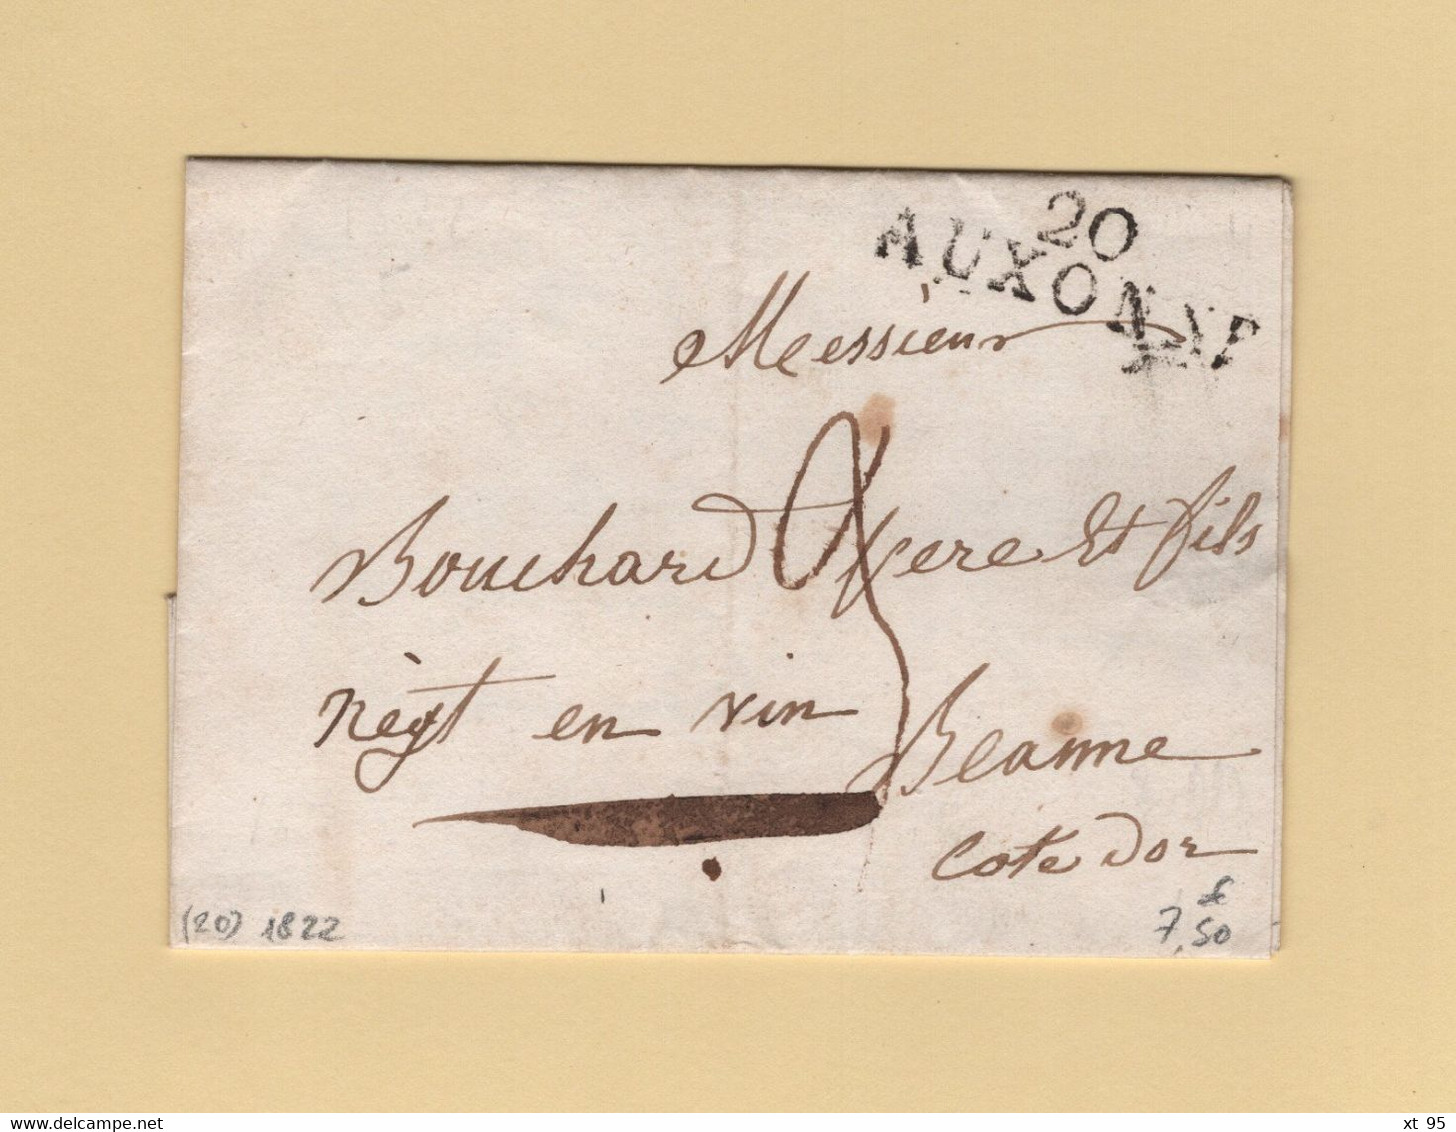 20
AUXONNE
Messieurs
Bouchard pere Et fils
Nègt en vin
Beaune
Cote Dor
(20) 1822
7,50
xt 95